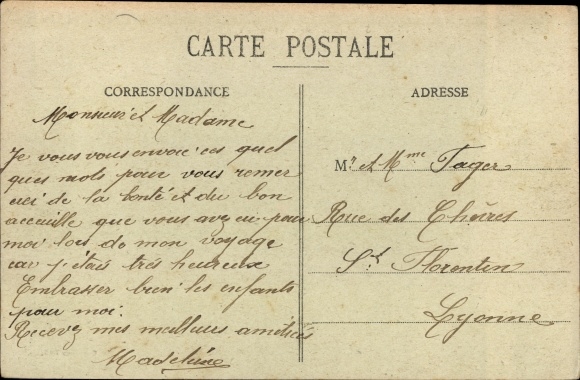 CARTE POSTALE
CORRESPONDANCE
Monsieur et Madame
Je vous vous envoie ces quel
ques mots pour vous remer
cier de la bonté et du bon
accuille que vous avez eu pour
moi lors de mon voyage
car j'étais très heureux
Embrasser bien les enfants
pour moi.
Recevez mes meilleurs amitiés
Madeleine
ADRESSE
Mr et Mme Tager
Rue des Chèvres
St Florentin
Lyonne